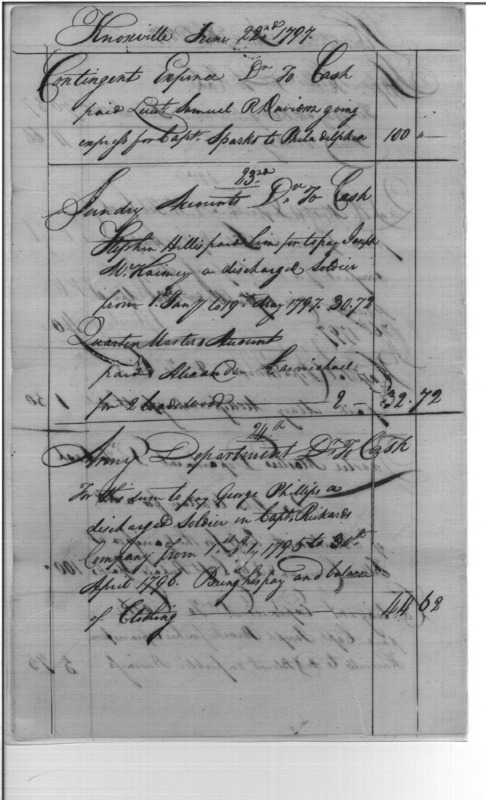 Knoxville June 22nd 1797.
Contingent Expence Dr To Cash
paid Lieut Samuel R Davidson going
express for Capt. Sparks to Philadelphia 100 "—
23rd
Sundry Accounts Dr To Cash
Stephen Hillis paid him for to pay Joseph
a discharged Soldier
from 1st Jany to 19th May 1797. 30.72
Quarter Masters Account
paid Alexander Carmichael
for 2 2 — 32.72
24th
Army Department Dr To Cash
For this sum to pay George Phillips a
discharged Soldier in Capt. Rickards
Company from 1st July 1795 to 30th
April 1796. Being his pay and balance
of Clothing 44 62